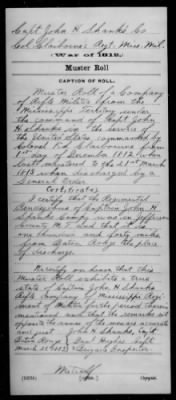 Capt John H Shanks Co
Col Claiborne's Regt. Miss. Mil.
(WAR OF 1812.)
Muster Roll
CAPTION OF ROLL.
Muster Roll of a Company
of Rifle Militia from the
Mississippi Territory under
the command of Capt John
H Shanks in the service of
the United States, commanded by
Colonel F. L. Claiborne from
1st day of December 1812 when
last mustered to the 21st March
1813 when discharged by a
General Order
Certificates
I certify that the Regimental
Rendezvous of Captain John H.
Shanks Compy was in Jefferson
County M. T. and that it is
one hundred and forty miles
from Baton Rouge the place
of discharge.
We certify on honor that this
Muster Roll exhibits a true
state of Captain John H. Shanks
Rifle Company of Mississippi Regi-
ment of Militia for the period therein
mentioned and that the remarks set
opposite the name of the men are accurate
and just John H Shanks, Capt
Baton Rouge
March 1813 Danl Hughes Capt
Brigade Inspector
Metcalf
Copyist.